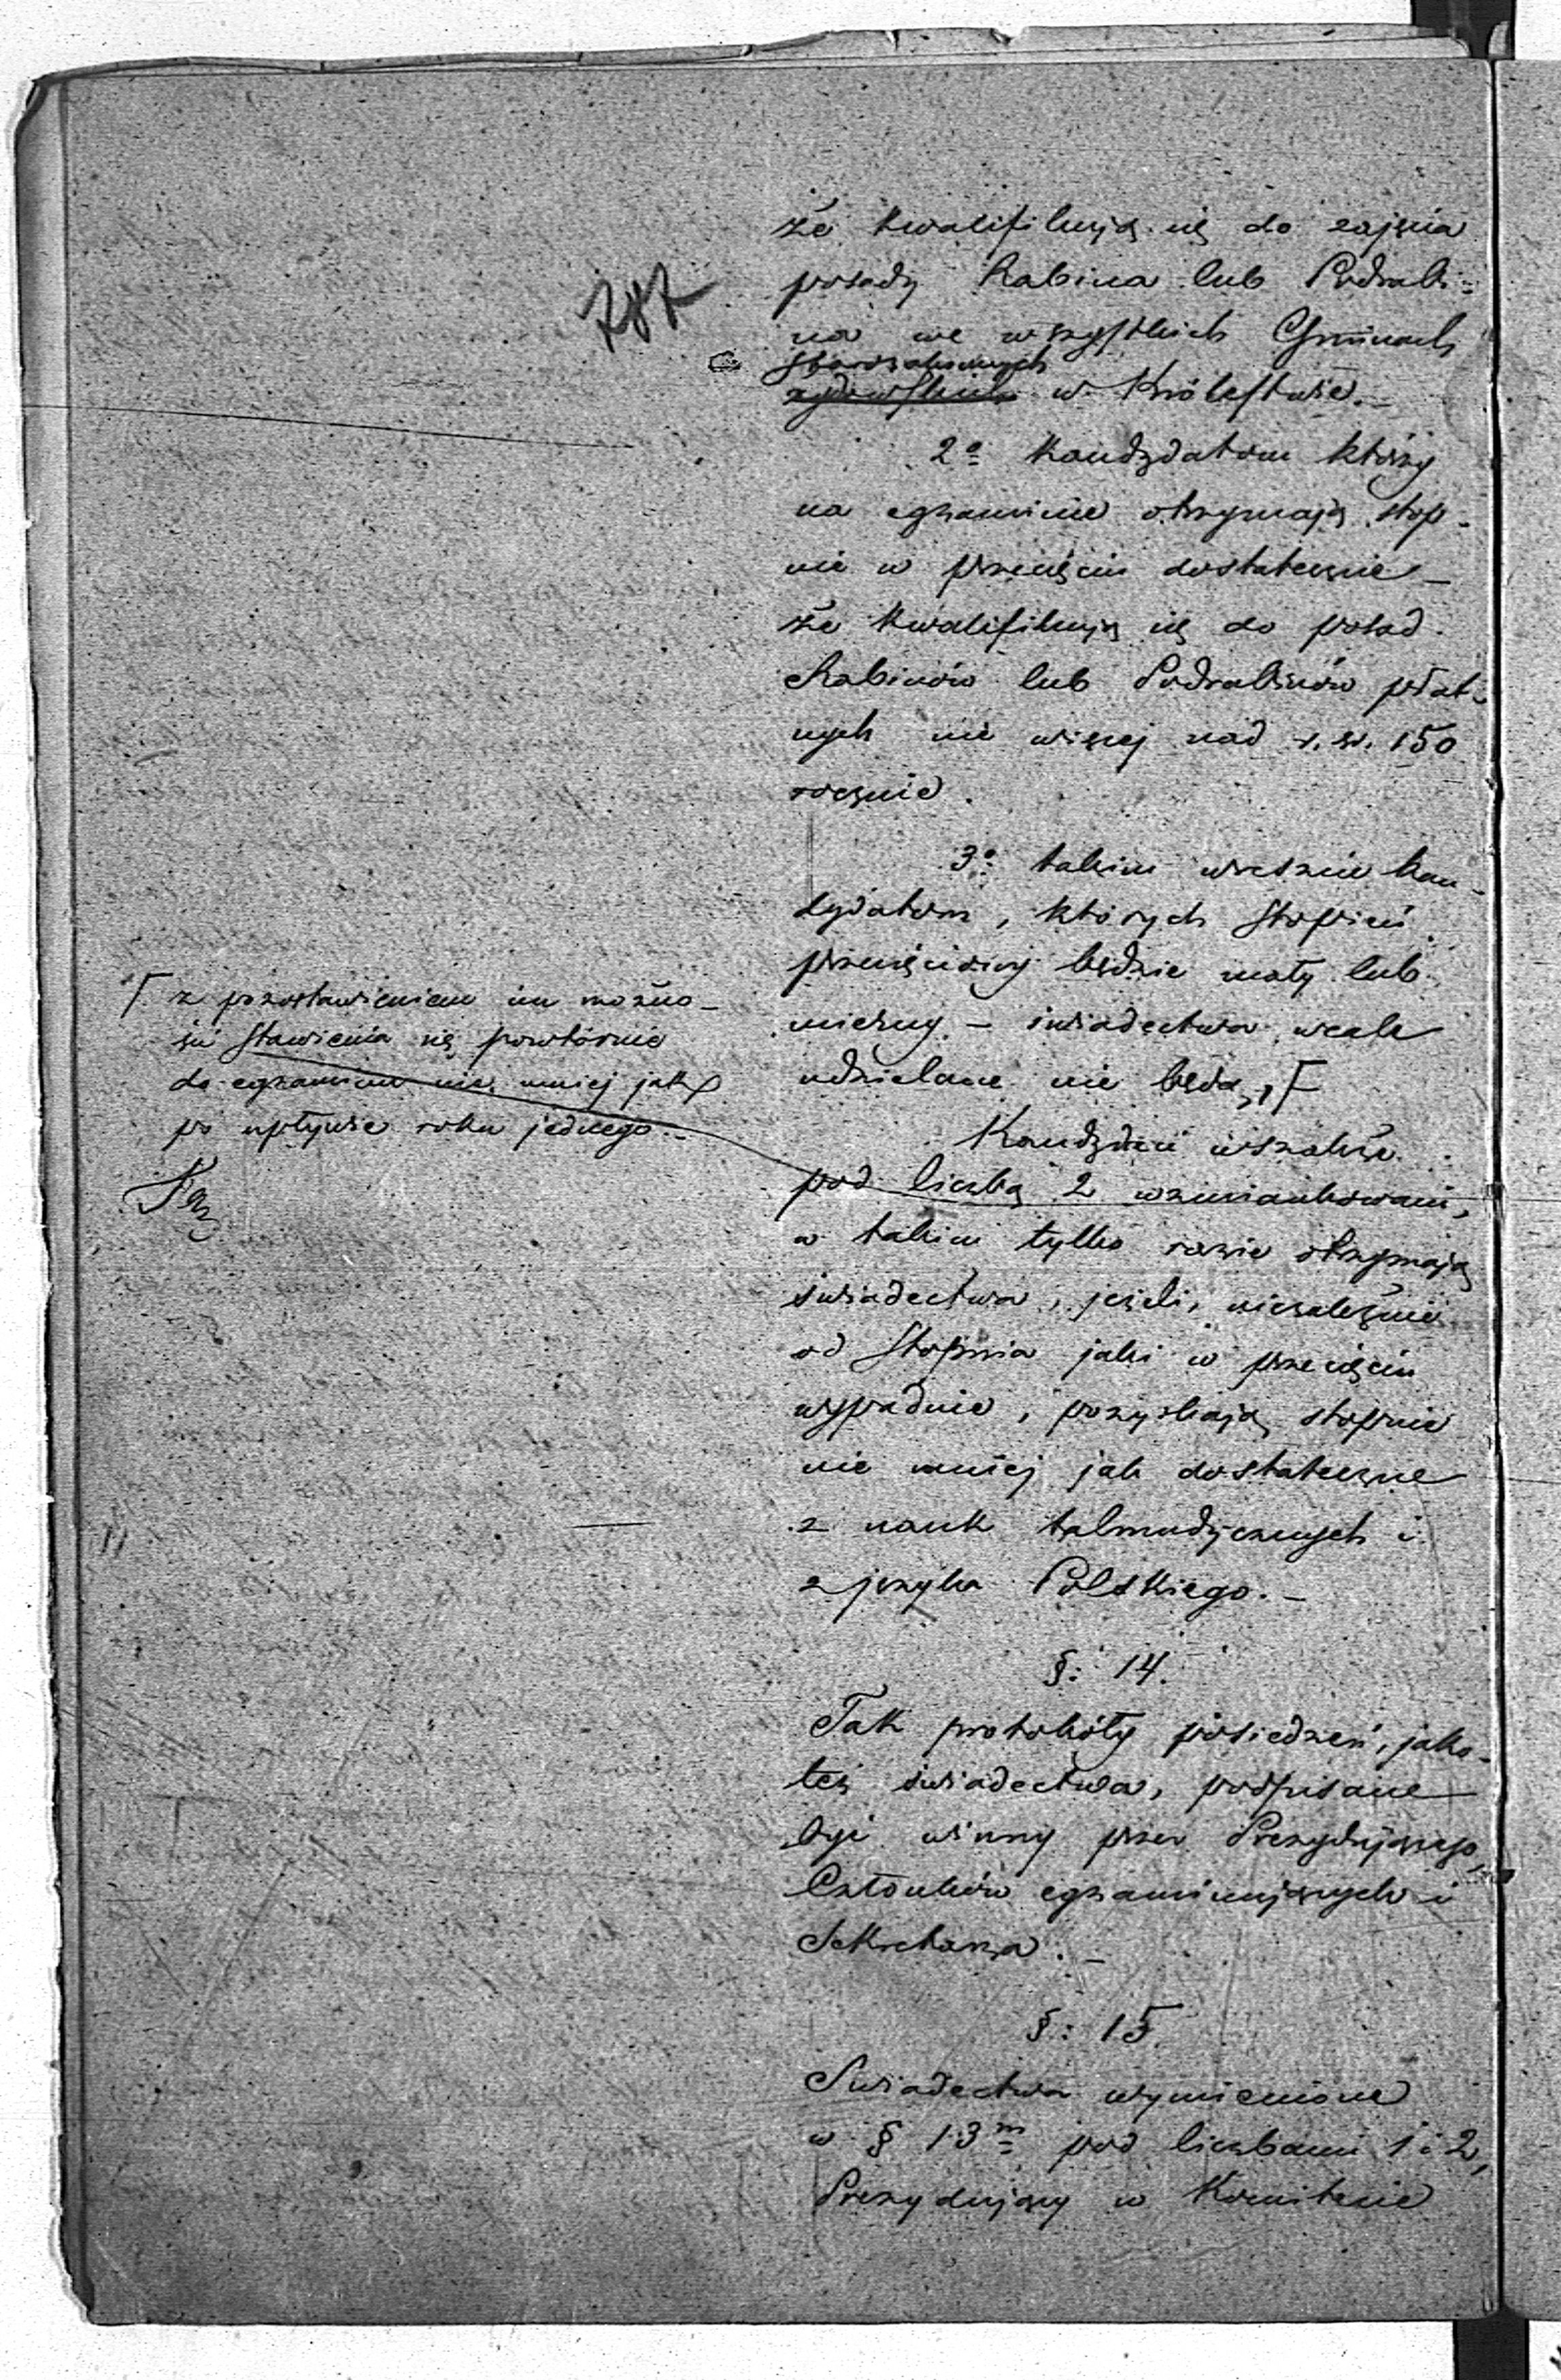 787
że kwalifikują się do zajęcia
posady Rabina lub Podrabi=
na we wszystkich Gminach
Starozakonnych
żydowskich w Królestwie.
2o Kandydatom którzy
na egzaminie otrzymają stop-
nie w przecięciu dostateczne –
że kwalifikują się do posad
Rabinów lub Podrabinów płat-
nych nie więcej nad r. sr. 150
rocznie.
3o takim wreszcie kan-
dydatom, których stopień
przecięciowy będzie mały lub
mierny – świadectwa wcale
udzielane nie będą, Γ
Γ z pozostawieniem im możno-
ści stawienia się powtórnie
do egzaminu nie mniej jak
po upływie roku jednego. –
Kandydaci wszakże
pod liczbą 2 wzmiankowani,
w takim tylko razie otrzymają
świadectwa, jeżeli, niezależnie
od stopnia jaki w przecięciu
wypadnie, pozyskają stopnie
nie mniej jak dostateczne
z nauk talmudycznych i
z języka Polskiego. –
§: 14.
Tak protokóły posiedzeń, jako-
też świadectwa, podpisane
być winny przez Prezydującego,
Członków egzaminujących i
Sekretarza. –
§: 15
Świadectwa wymienione
w § 13m pod liczbami 1 i 2,
Prezydujący w Komitecie